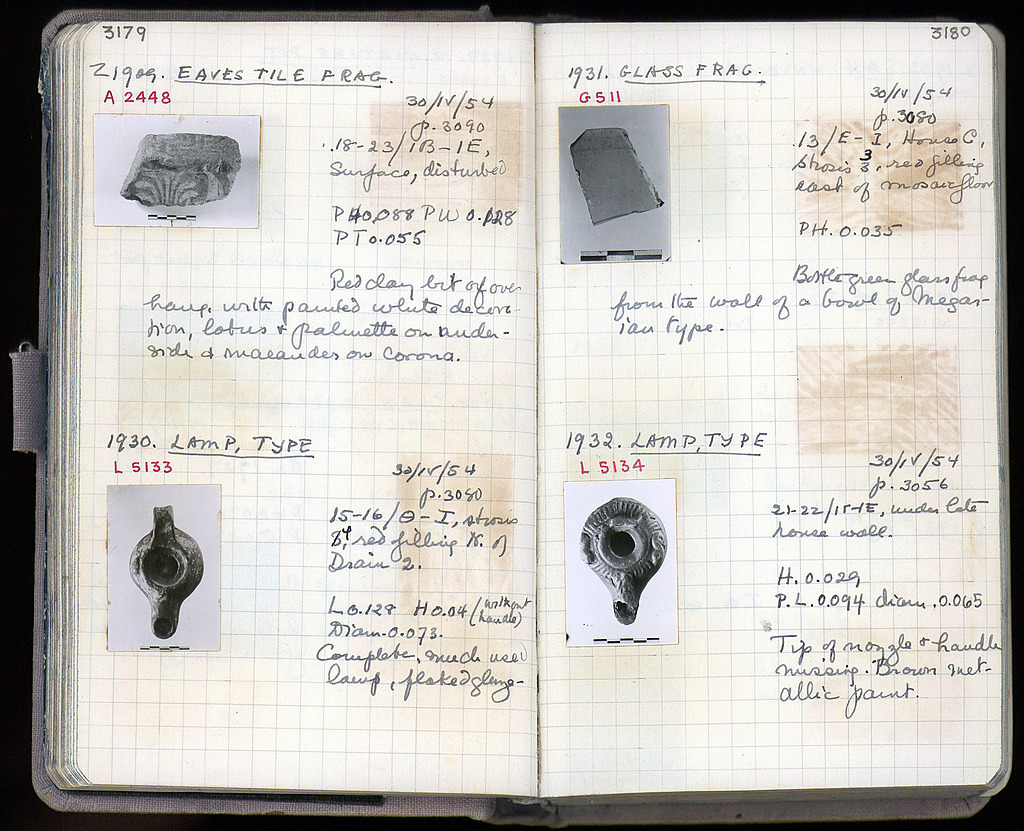 3179
Z1909. EAVES TILE FRAG.
A 2448
30/IV/54
p.3090
18-23/ΙΒ-ΙΕ,
Surface, disturbed
PH 0.088 PW 0.128
PT 0.055
Red clay bit of over
hang. with painted white decora-
tion, lotus + palmette on under-
side & maeanders on corona.
1930. LAMP, TYPE
L 5133
30/IV/54
p.3080
15-16/Θ-Ι, strosis
red filling N. of
Drain 2.
L 0.128 H 0.04 (without
handle)
Diam. 0.073.
Complete, much used
lamp, flaked glaze-
3180
1931. GLASS FRAG.
G 511
30/IV/54
p.3080
13/Ε-Ι, House C,
strosis 3, red filling
east of mosaic floor
PH. 0.035
Bottle green glass frag
from the wall of a bowl of Megar-
ian type.
1932. LAMP, TYPE
L 5134
30/IV/54
p.3056
21-22/ΙΓ-ΙΕ, under late
house wall.
H. 0.029
P.L. 0.094 diam. 0.065
Tip of nozzle & handle
missing. Brown met-
allic paint.